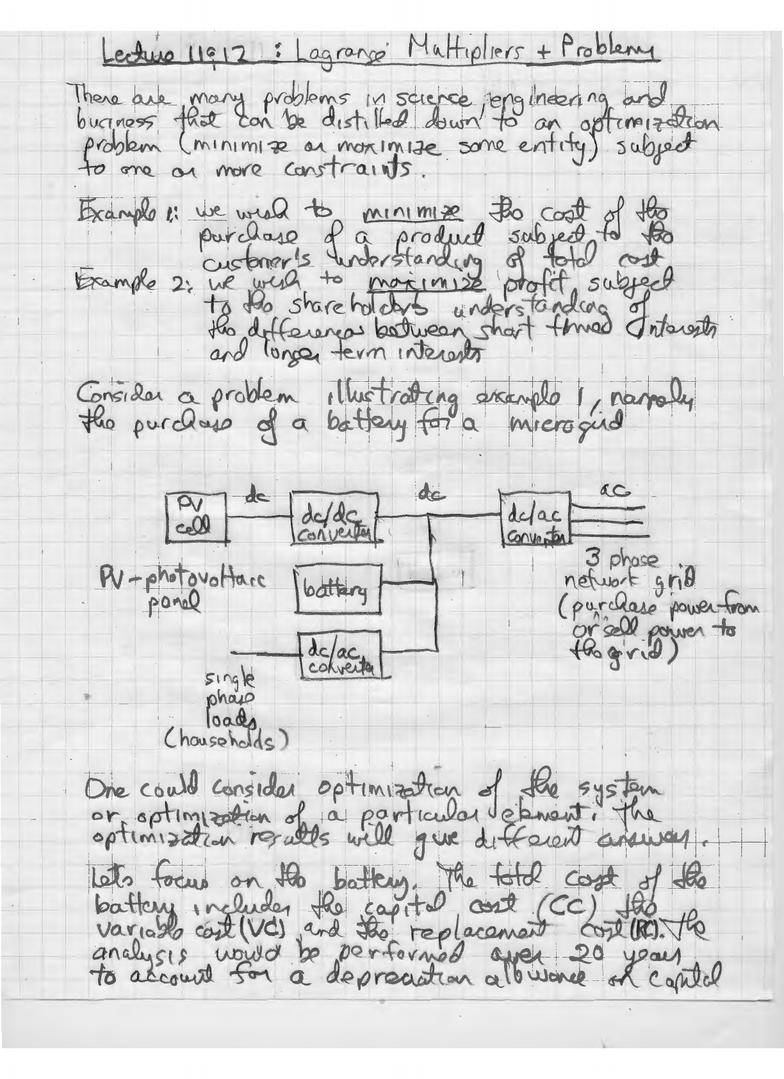 Lecture 11&12 : Lagrange Multipliers + Problems
There are many problems in science, engineering and
business that can be distilled down to an optimization
problem (minimize or maximize some entity) subject
to one or more constraints.
Example 1: we wish to minimize the cost of the
purchase of a product subject to the
customer's understanding of total cost
Example 2: we wish to maximize profit subject
to the shareholders understanding of
the differences between short timed interests
and longer term interests
Consider a problem illustrating example 1, namely
the purchase of a battery for a microgrid
PV
cell
dc
dc/dc
converter
dc
dc/ac
converter
ac
PV - photovoltaic
panel
battery
3 phase
network grid
(purchase power from
or sell power to
the grid)
dc/ac
converter
single
phase
loads
(households)
One could consider optimization of the system
or optimization of a particular element. The
optimization results will give different answers.
Lets focus on the battery. The total cost of the
battery includes the capital cost (CC) the
variable cost (VC) and the replacement cost (RC). The
analysis would be performed over 20 years
to account for a depreciation allowance on capital